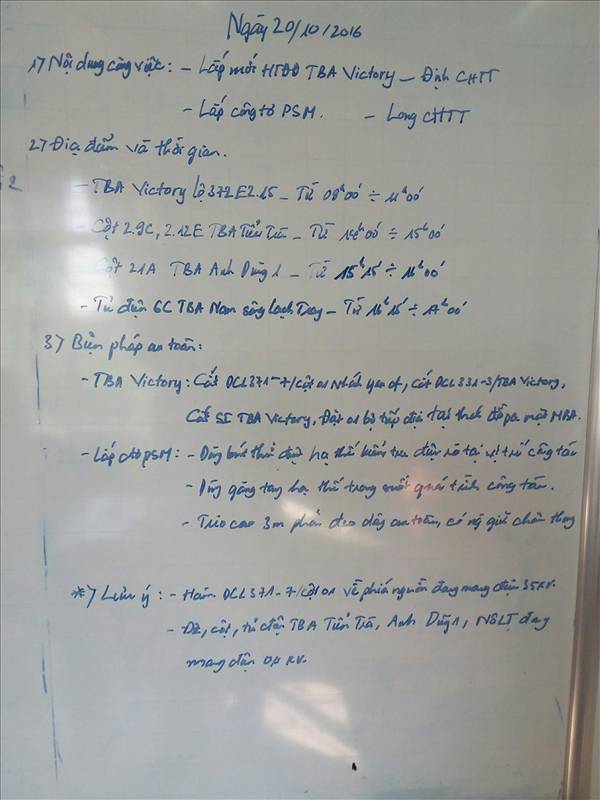 Ngày 20/10/2016
1) Nội dung công việc: - Lắp mới HTĐĐ TBA Victory - Định CHTT
- Lắp công tơ PSM. - Long CHTT
2) Địa điểm và thời gian.
- TBA Victory lộ 372E2.15 - Từ 08h00' ÷ 11h00'
- Cột 2.9C, 2.12E TBA Tiểu Trà - Từ 14h00' ÷ 15h00'
- Cột 21A TBA Anh Dũng 1 - Từ 15h15' ÷ 16h00'
- Tủ điện 6C TBA Nam sông Lạch Tray - Từ 16h15' ÷ 17h00'
3) Biện pháp an toàn:
- TBA Victory: Cắt DCL371-7/cột 01 Nhánh, cắt DCL331-3/TBA Victory,
Cắt SI TBA Victory, Đặt 01 bộ tiếp địa tại mặt MBA.
- Lắp ctơ PSM: - Dùng bút thử điện hạ thế kiểm tra điện rò tại vị trí công tác
- Dùng găng tay hạ thế trong suốt quá trình công tác.
- Trèo cao 3m phải đeo dây an toàn, có ng giữ chân thang
*) Lưu ý: - Hàm DCL371-7/cột 01 về phía nguồn đang mang điện 35KV.
- ĐZ, cột, tủ điện TBA Tiểu Trà, Anh Dũng 1, NSLT đang
mang điện 0,4 KV.